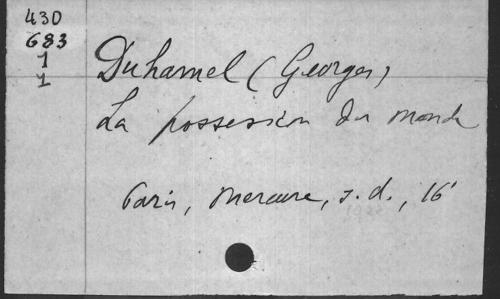 430
683
1
1
Duhamel (Georges)
La possession du monde
Paris, Mercure, s.d., 16°